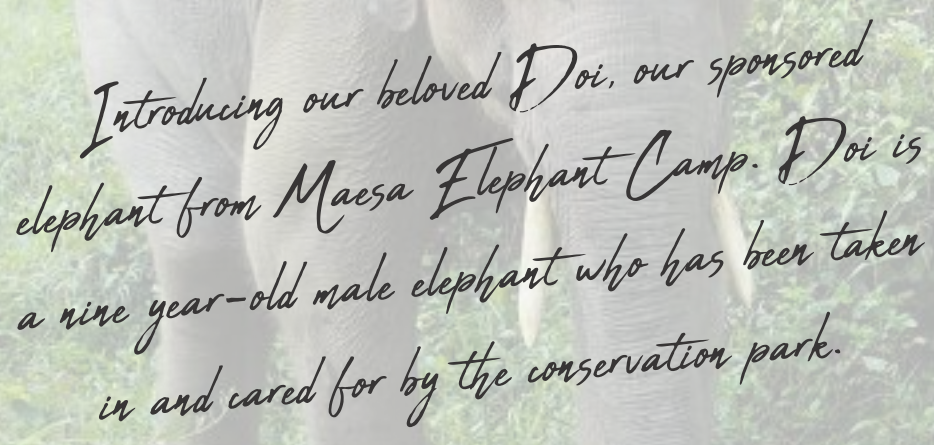 Introducing our beloved Doi, our sponsored
elephant from Maesa Elephant Camp. Doi is
a nine year-old male elephant who has been taken
in and cared for by the conservation park.